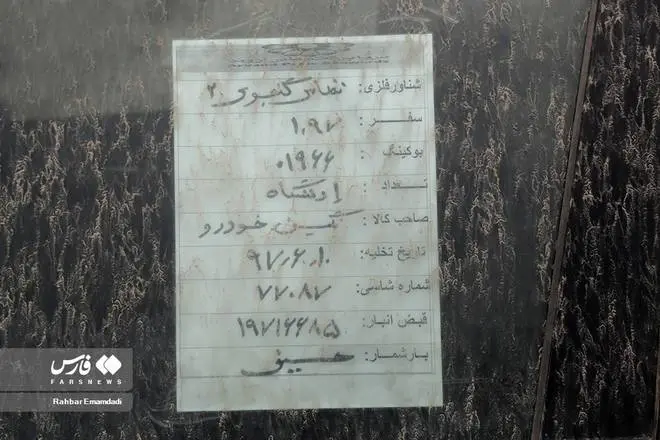 شناور فلزی: نماس گنبوی ۲
سفر: ۱,۹۷
بوکینگ: ۰۱۹۶۶
تعداد: ۱ دستگاه
صاحب کالا: خودرو
تاریخ تخلیه: ۹۷,۶,۱۰
شماره شاسی: ۷۷۰۸۷
قبض انبار: ۱۹۷۱۶۶۸۵
بارشمار: حسینی
فارس
FARSNEWS
Rahbar Emamdadi